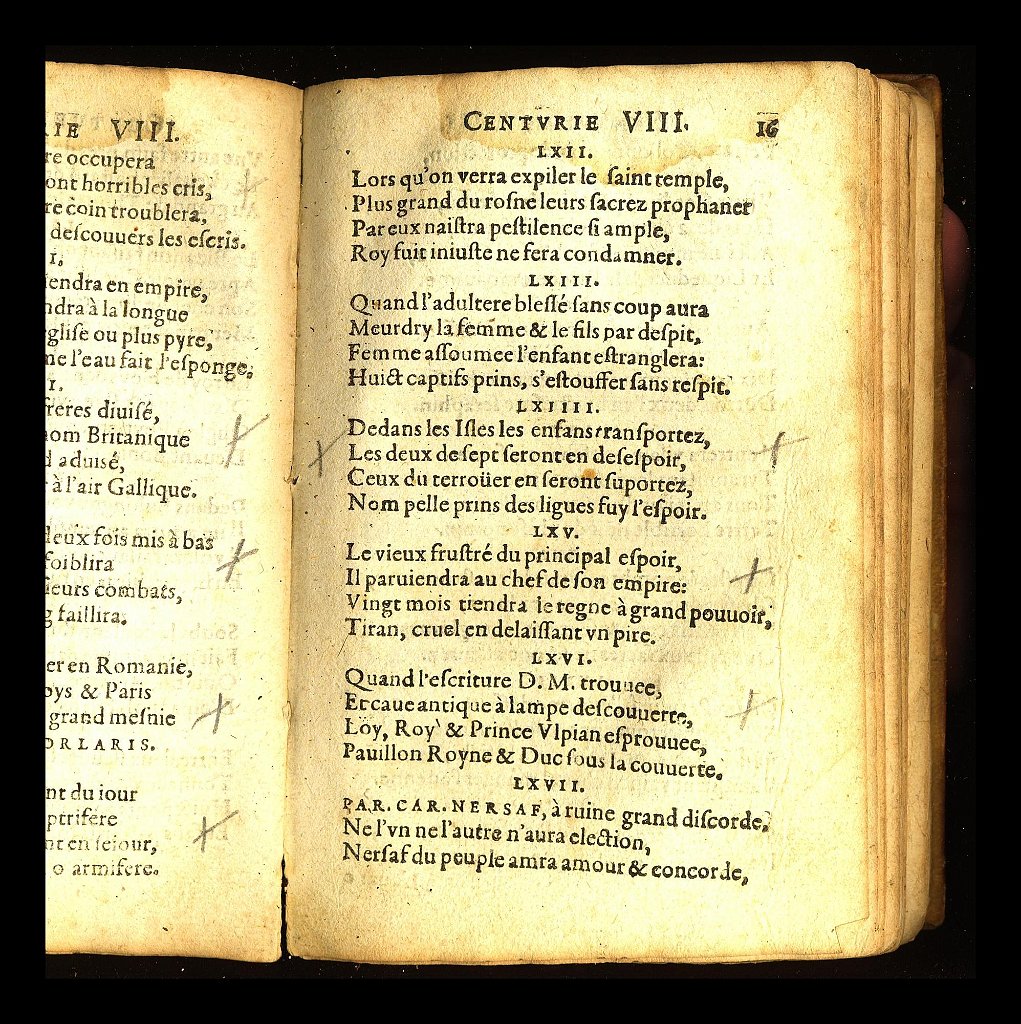 RIE VIII.
re occupera
ont horribles cris,
re coin troublera,
descouuers les escris.
I.
iendra en empire,
ndra à la longue
glise ou plus pyre,
me l'eau fait l'esponge,
I.
reres diuisé,
nom Britanique
d aduisé,
à l'air Gallique.
deux fois mis à bas
foiblira
leurs combats,
g faillira.
er en Romanie,
oys & Paris
grand mesnie
ORLARIS.
nt du iour
ptrifere
nt en seiour,
o armifere.
CENTVRIE VIII. 16
LXII.
Lors qu'on verra expiler le ſaint temple,
Plus grand du roſne leurs ſacrez prophaner
Par eux naiſtra peſtilence ſi ample,
Roy fuit iniuſte ne fera condamner.
LXIII.
Quand l'adultere bleſſé ſans coup aura
Meurdry la femme & le fils par deſpit,
Femme aſſoumee l'enfant eſtranglera:
Huict captifs prins, s'eſtouffer ſans reſpit.
LXIIII.
Dedans les Iſles les enfans tranſportez,
Les deux de ſept ſeront en deſeſpoir,
Ceux du terroüer en ſeront ſuportez,
Nom pelle prins des ligues fuy l'eſpoir.
LXV.
Le vieux fruſtré du principal eſpoir,
Il paruiendra au chef de ſon empire:
Vingt mois tiendra le regne à grand pouuoir,
Tiran, cruel en delaiſſant vn pire.
LXVI.
Quand l'eſcriture D. M. trouuee,
Et caue antique à lampe deſcouuerte,
Loy, Roy & Prince Vlpian eſprouuee,
Pauillon Royne & Duc ſous la couuerte.
LXVII.
PAR. CAR. NERSAF, à ruine grand diſcorde,
Ne l'vn ne l'autre n'aura election,
Nerſaf du peuple amra amour & concorde,